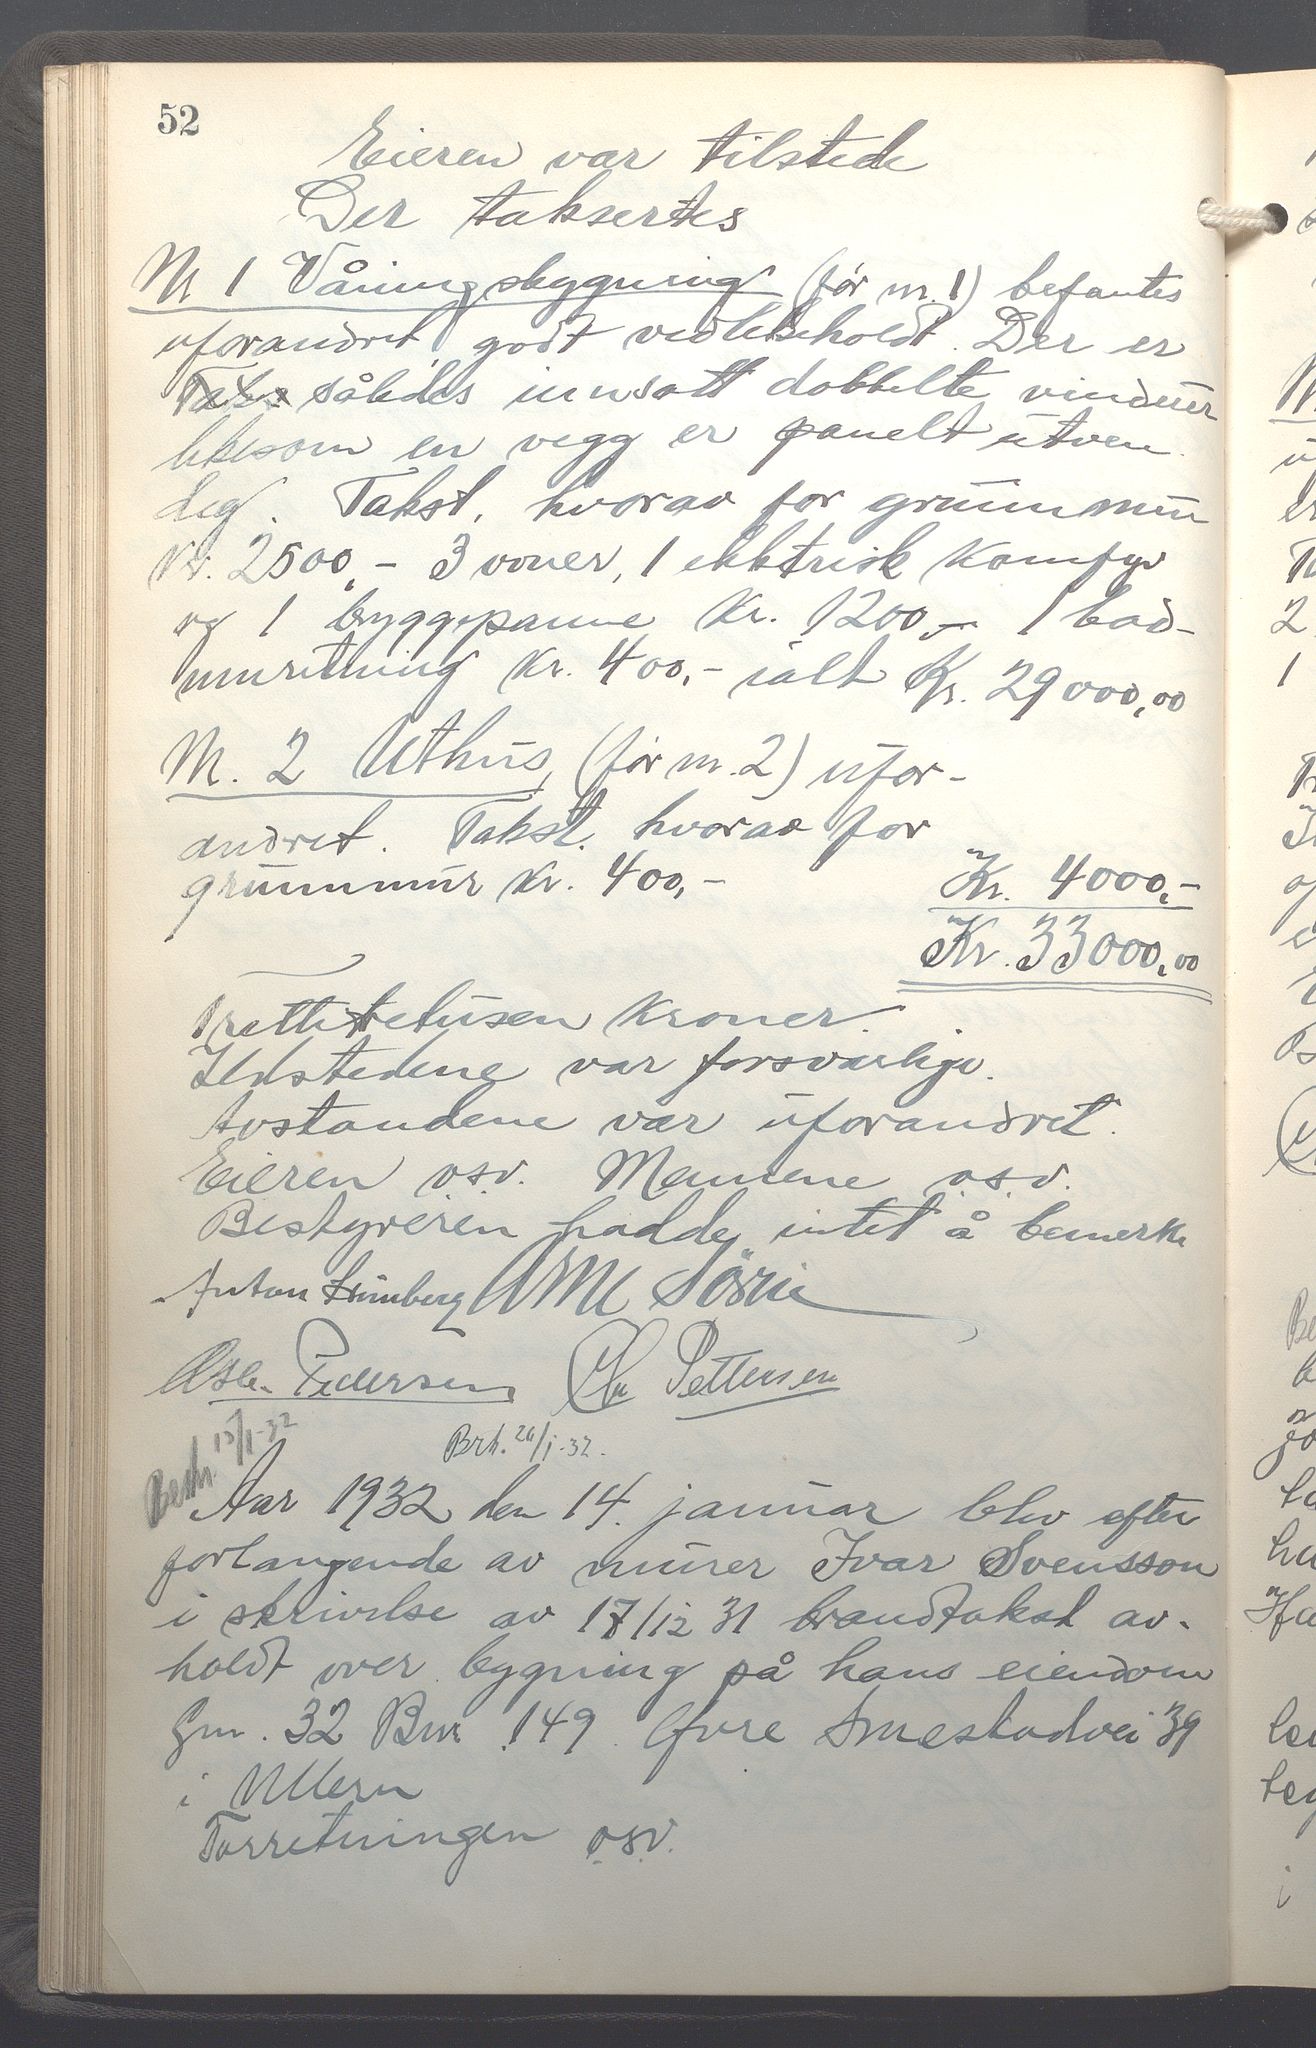 52
Eieren var tilstede
Der taksertes
Nr 1 Våningsbygning (før nr. 1) befantes
uforandret, godt vedlikeholdt. Der er
således innsatt dobbelte vinduer
likesom en vegg er panelt utven
dig. Takst, hvorav for grunnmur
Kr. 2500,- 3 ovner, 1 elektrisk komfyr
og 1 bryggepanne Kr. 1200,- 1 bad-
innretning Kr. 400,- ialt Kr. 29000,00
Nr. 2 Uthus, (før nr. 2) ufor-
andret. Takst, hvorav for
grunnmur Kr. 400,-
Kr. 4000,-
Kr. 33000,00
Trettitretusen Kroner.
Ildstedene var forsvarlige.
Avstandene var uforandret.
Eieren osv. Mennene o.s.v.
Bestyreren hadde intet å bemerke
Anton Arne
Pedersen Chr Pettersen
Besth. 15/1-32
Brt. 26/1-32.
Aar 1932 den 14. januar blev efter
forlangende av murer Ivar Svensson
i skrivelse av 17/12 31 brandtakst av-
holdt over bygning på hans eiendom
Gnr. 32 Bnr 149 Øvre Smestadvei 39
i Ullern
Forretningen osv.